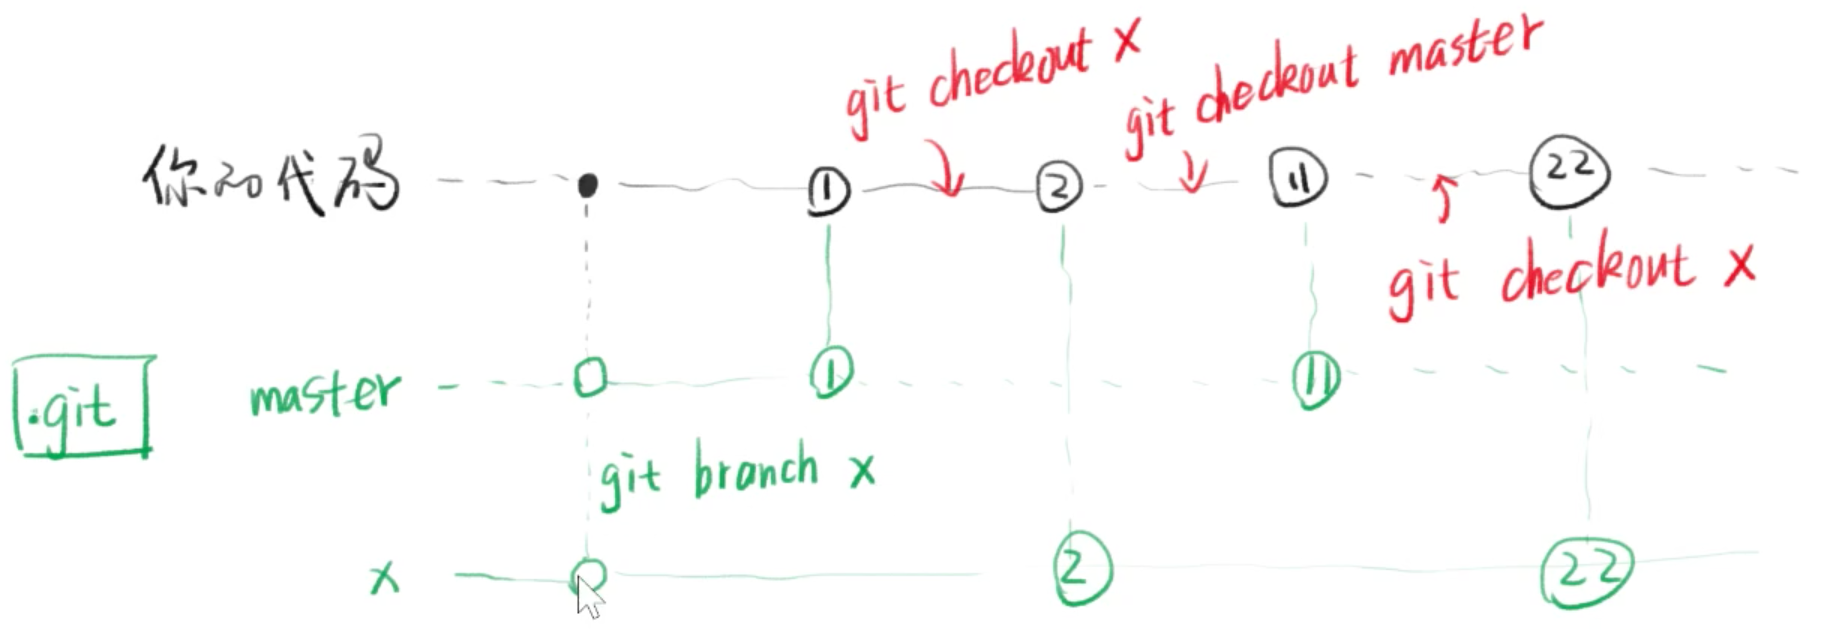 git checkout x
git checkout master
你的代码 ① ② ⑪ ㉒
git checkout x
.git
master ① ⑪
git branch x
x ② ㉒